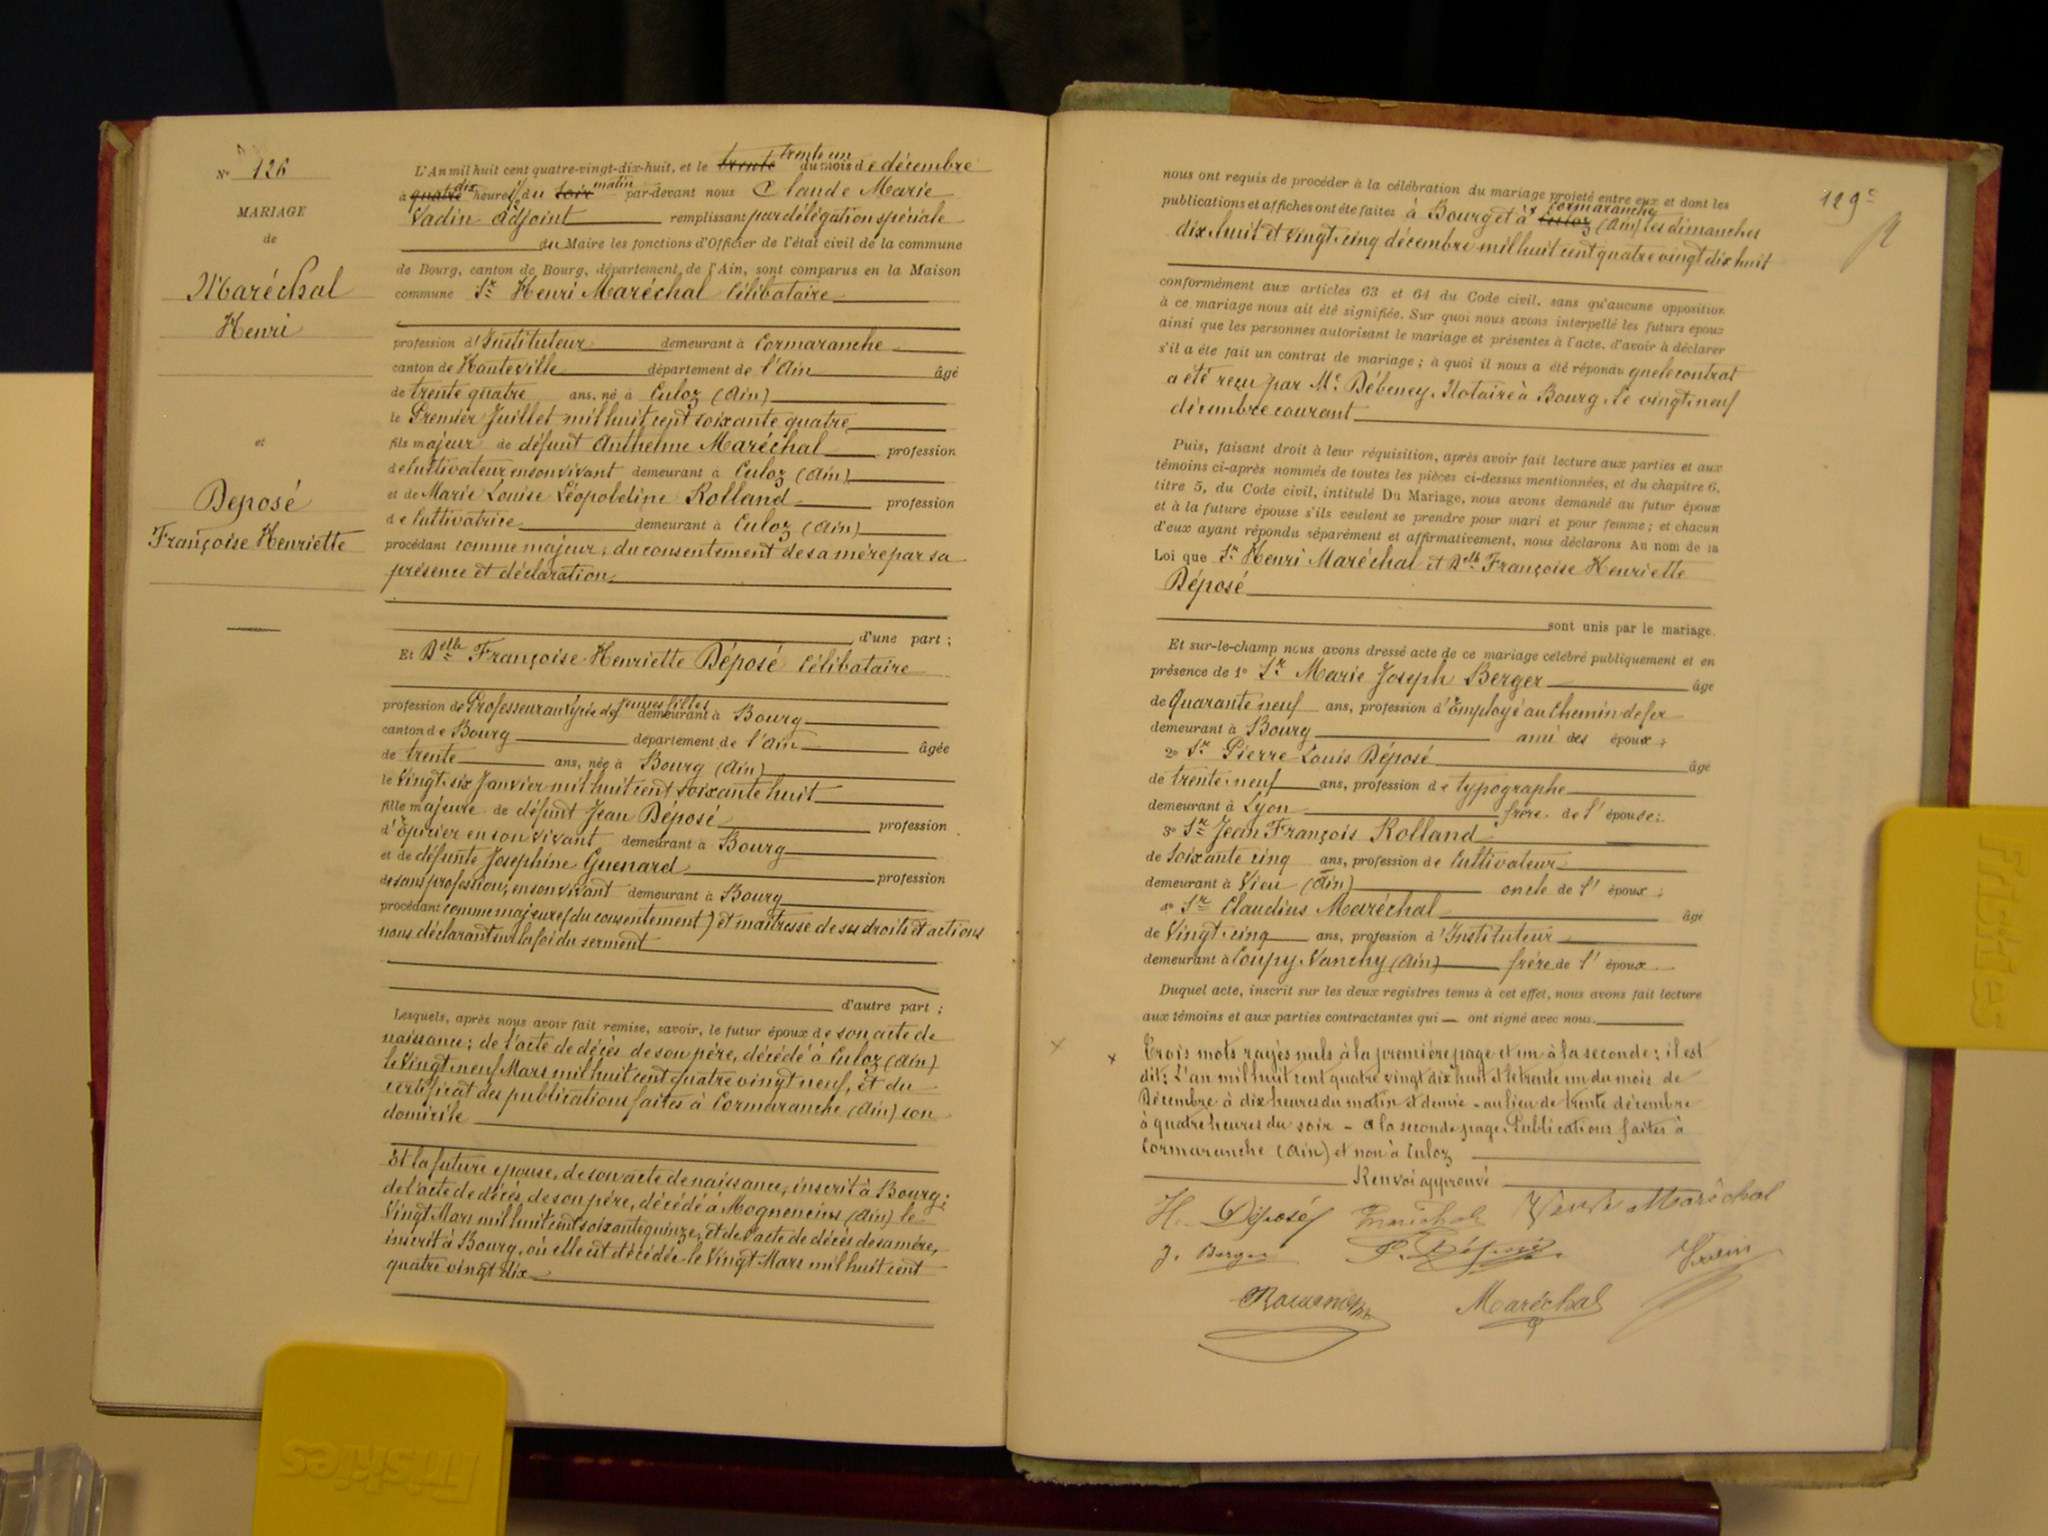 N° 126
MARIAGE
de
Maréchal
Henri
et
Déposé
Françoise Henriette
L'An mil huit cent quatre-vingt-dix-huit, et le trente trente un du mois de décembre
à quatre dix heures ½ du soir matin par-devant nous Claude Marie
Vadin Adjoint remplissant par délégation spéciale
du Maire les fonctions d'Officier de l'état civil de la commune
de Bourg, canton de Bourg, département de l'Ain, sont comparus en la Maison
commune Sr Henri Maréchal Célibataire
profession d'Instituteur demeurant à Cormaranche
canton de Hauteville département de l'Ain âgé
de trente quatre ans, né à Culoz (Ain)
le Premier Juillet mil huit cent soixante quatre
fils majeur de défunt Anthelme Maréchal profession
de Cultivateur en son vivant demeurant à Culoz (Ain)
et de Marie Louise Léopoldine Rolland profession
de Cultivatrice demeurant à Culoz (Ain)
procédant comme majeur, du consentement de sa mère par sa
présence et déclaration
d'une part ;
Et Delle Françoise Henriette Déposé Célibataire
profession de Professeur au lycée de jeunes filles demeurant à Bourg
canton de Bourg département de l'Ain âgée
de trente ans, née à Bourg (Ain)
le Vingt-six Janvier mil huit cent soixante huit
fille majeure de défunt Jean Déposé profession
d'Epicier en son vivant demeurant à Bourg
et de défunte Josephine Guenard profession
de sans profession, en son vivant demeurant à Bourg
procédant comme majeure (du consentement) et maîtresse de ses droits et actions
nous déclarant sur la foi du serment
d'autre part ;
Lesquels, après nous avoir fait remise, savoir, le futur époux de son acte de
naissance ; de l'acte de décès de son père, décédé à Culoz (Ain)
le Vingt neuf Mars mil huit cent quatre vingt neuf, et du
certificat des publications faites à Cormaranche (Ain) son
domicile
Et la future épouse, de son acte de naissance, inscrit à Bourg ;
de l'acte de décès, de son père, décédé à Mogneneins (Ain) le
Vingt Mars mil huit cent soixante quinze, et de l'acte de décès de sa mère,
inscrit à Bourg, où elle est décédée le Vingt Mars mil huit cent
quatre vingt dix
129e
nous ont requis de procéder à la célébration du mariage projeté entre eux et dont les
publications et affiches ont été faites à Bourg et à Culoz Cormaranche (Ain) les dimanches
dix huit et vingt-cinq décembre mil huit cent quatre vingt dix huit
conformément aux articles 63 et 64 du Code civil, sans qu'aucune opposition
à ce mariage nous ait été signifiée. Sur quoi nous avons interpellé les futurs époux
ainsi que les personnes autorisant le mariage et présentes à l'acte, d'avoir à déclarer
s'il a été fait un contrat de mariage ; à quoi il nous a été répondu que le contrat
a été reçu par Me Débeney, Notaire à Bourg, le vingt-neuf
décembre courant
Puis, faisant droit à leur réquisition, après avoir fait lecture aux parties et aux
témoins ci-après nommés de toutes les pièces ci-dessus mentionnées, et du chapitre 6,
titre 5, du Code civil, intitulé Du Mariage, nous avons demandé au futur époux
et à la future épouse s'ils veulent se prendre pour mari et pour femme ; et chacun
d'eux ayant répondu séparément et affirmativement, nous déclarons Au nom de la
Loi que Sr Henri Maréchal et Delle Françoise Henriette
Déposé
sont unis par le mariage.
Et sur-le-champ nous avons dressé acte de ce mariage célébré publiquement et en
présence de 1° Sr Marie Joseph Berger âgé
de Quarante neuf ans, profession d'Employé au Chemin de fer
demeurant à Bourg ami des époux ;
2° Sr Pierre Louis Déposé âgé
de trente-neuf ans, profession de typographe
demeurant à Lyon frère de l'épouse ;
3° Sr Jean François Rolland
de Soixante cinq ans, profession de Cultivateur
demeurant à Vieu (Ain) oncle de l'époux ;
4° Sr Claudius Maréchal âgé
de Vingt-cinq ans, profession d'Instituteur
demeurant à Coupy-Vanchy (Ain) frère de l'époux
Duquel acte, inscrit sur les deux registres tenus à cet effet, nous avons fait lecture
aux témoins et aux parties contractantes qui ont signé avec nous.
x x Trois mots rayés nuls à la première page et un à la seconde ; il est
dit : L'an mil huit cent quatre vingt dix huit et le trente un du mois de
Décembre à dix heures du matin et demie - au lieu de trente décembre
à quatre heures du soir - A la seconde page, Publications faites à
Cormaranche (Ain) et non à Culoz
Renvoi approuvé
H. Déposé Maréchal Veuve Maréchal
J. Berger P. Déposé Vadin
Maréchal
Friskies
Friskies